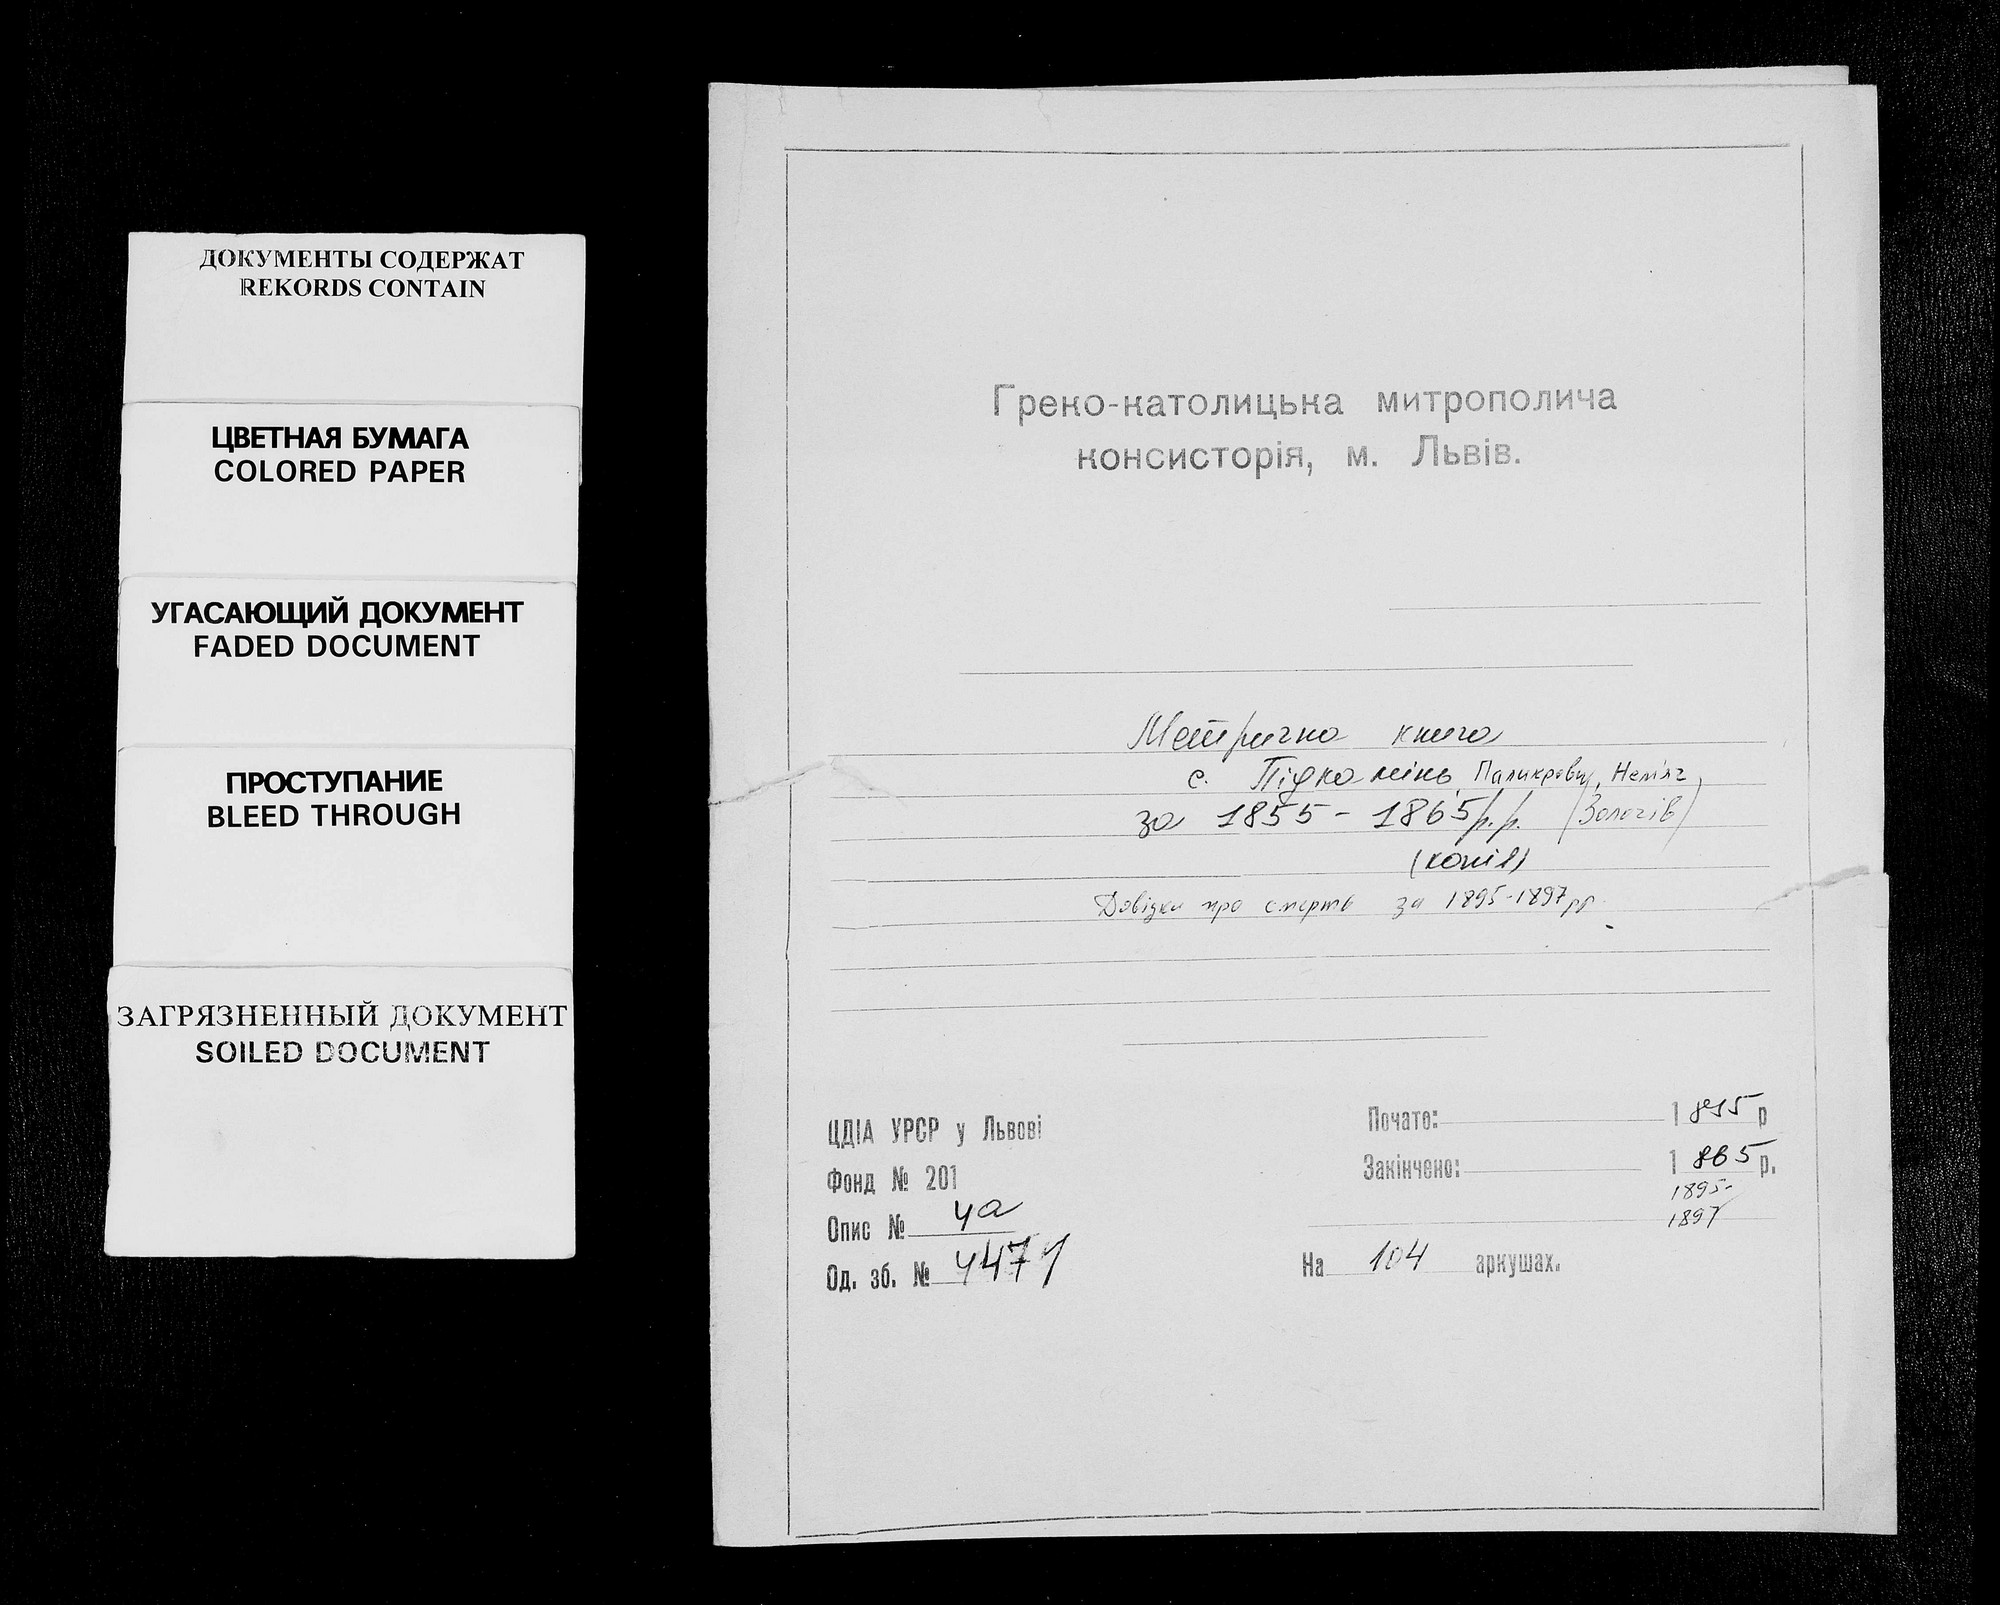 ДОКУМЕНТЫ СОДЕРЖАТ
REKORDS CONTAIN
ЦВЕТНАЯ БУМАГА
COLORED PAPER
УГАСАЮЩИЙ ДОКУМЕНТ
FADED DOCUMENT
ПРОСТУПАНИЕ
BLEED THROUGH
ЗАГРЯЗНЕННЫЙ ДОКУМЕНТ
SOILED DOCUMENT
Греко-католицька митрополича
консисторія, м. Львів.
Метрична книга
с. Підкамінь, Паликрови,
за 1855 - 1865 р.р. (Золочів)
(копія)
Довідки про смерть за 1895-1897 рр.
ЦДІА УРСР у Львові
Фонд № 201
Опис № 4а
Од. зб. №
Почато: 1855 р
Закінчено: 1865 р.
1895-
1897
На 104 аркушах.